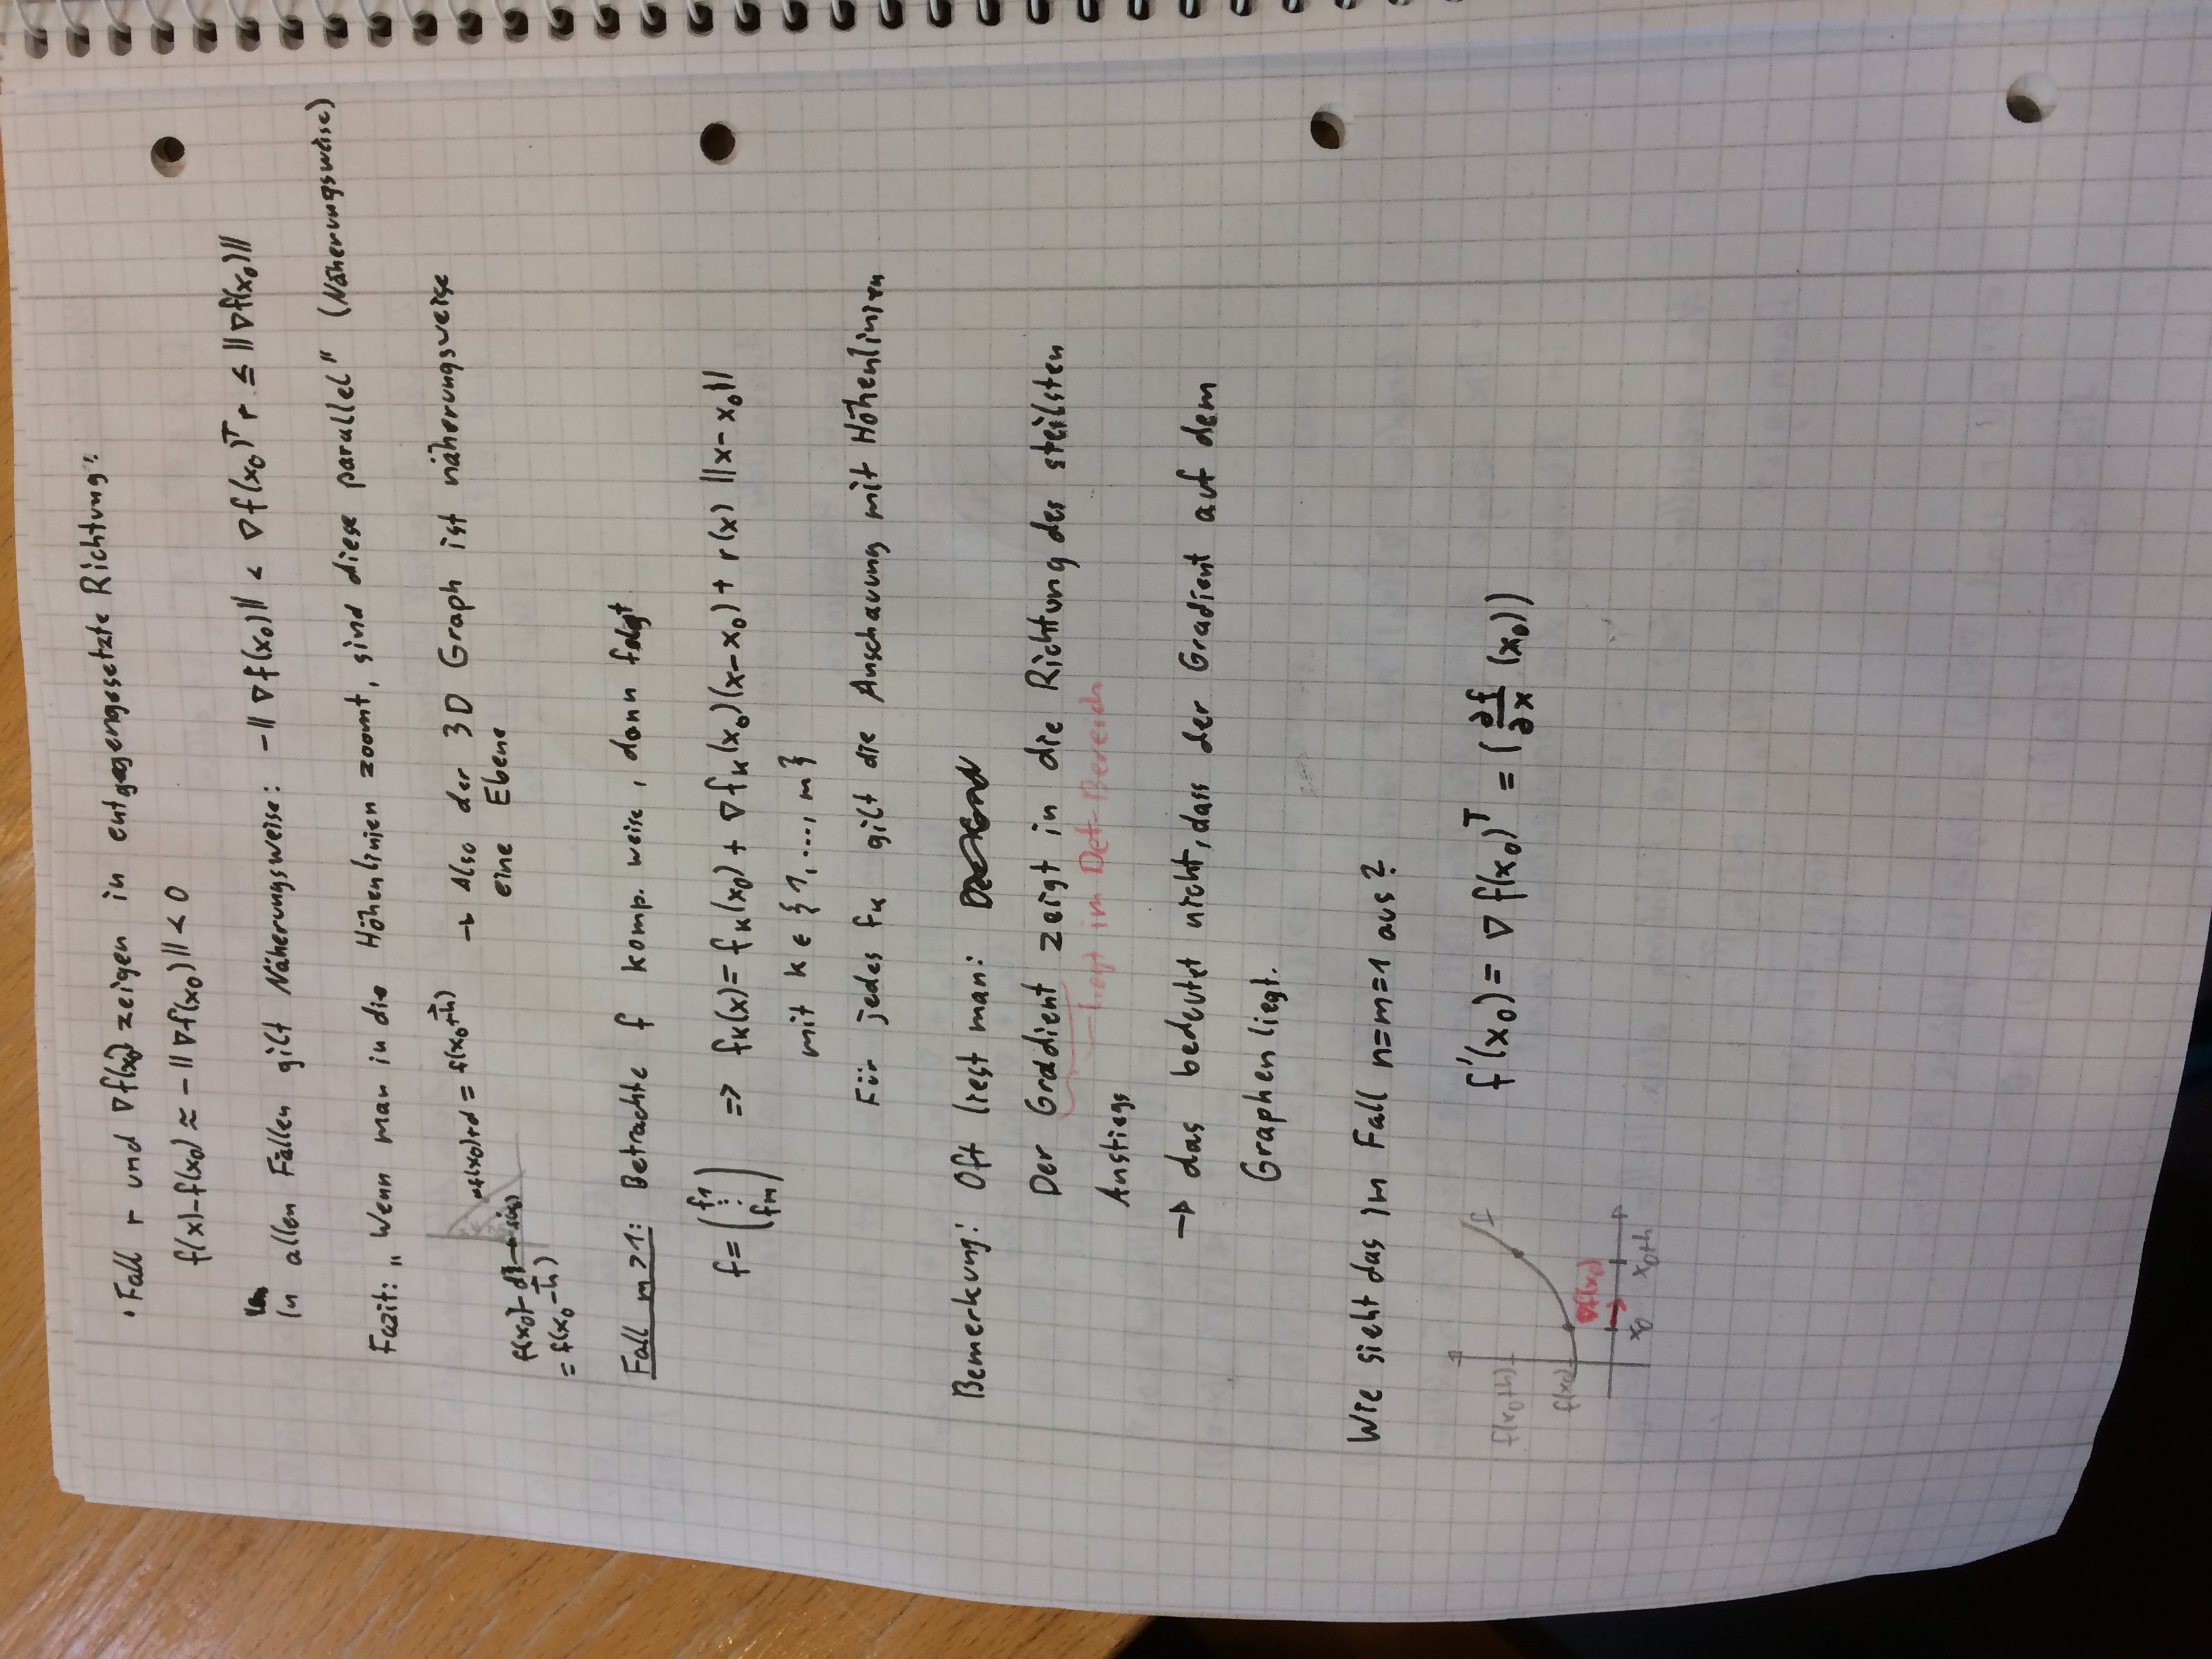 • Fall r und ∇f(x₀) zeigen in entgegengesetzte Richtung:
f(x)-f(x₀) ≈ -‖∇f(x₀)‖ < 0
In allen Fällen gilt Näherungsweise: -‖∇f(x₀)‖ < ∇f(x₀)ᵀ r ≤ ‖∇f(x₀)‖
Fazit: „Wenn man in die Höhenlinien zoomt, sind diese parallel" (Näherungsweise)
f(x₀)+d = f(x₀+h⃗) → Also der 3D Graph ist näherungsweise
eine Ebene
f(x₀)-d
= f(x₀-h⃗)
Fall m>1: Betrachte f komp. weise, dann folgt
f = (f1 ⋮ fm) => fₖ(x) = fₖ(x₀) + ∇fₖ(x₀)(x-x₀) + r(x) ‖x-x₀‖
mit k ∈ {1, ..., m}
Für jedes fₖ gilt die Anschauung mit Höhenlinien
Bemerkung: Oft liest man:
Der Gradient zeigt in die Richtung des steilsten
liegt im Def-Bereich
Anstiegs
→ das bedeutet nicht, dass der Gradient auf dem
Graphen liegt.
Wie sieht das im Fall n=m=1 aus?
f
f(x₀+h)
f'(x₀) = ∇f(x₀)ᵀ = (∂f/∂x (x₀))
f(x₀)
∇f(x₀)
x₀ x₀+h